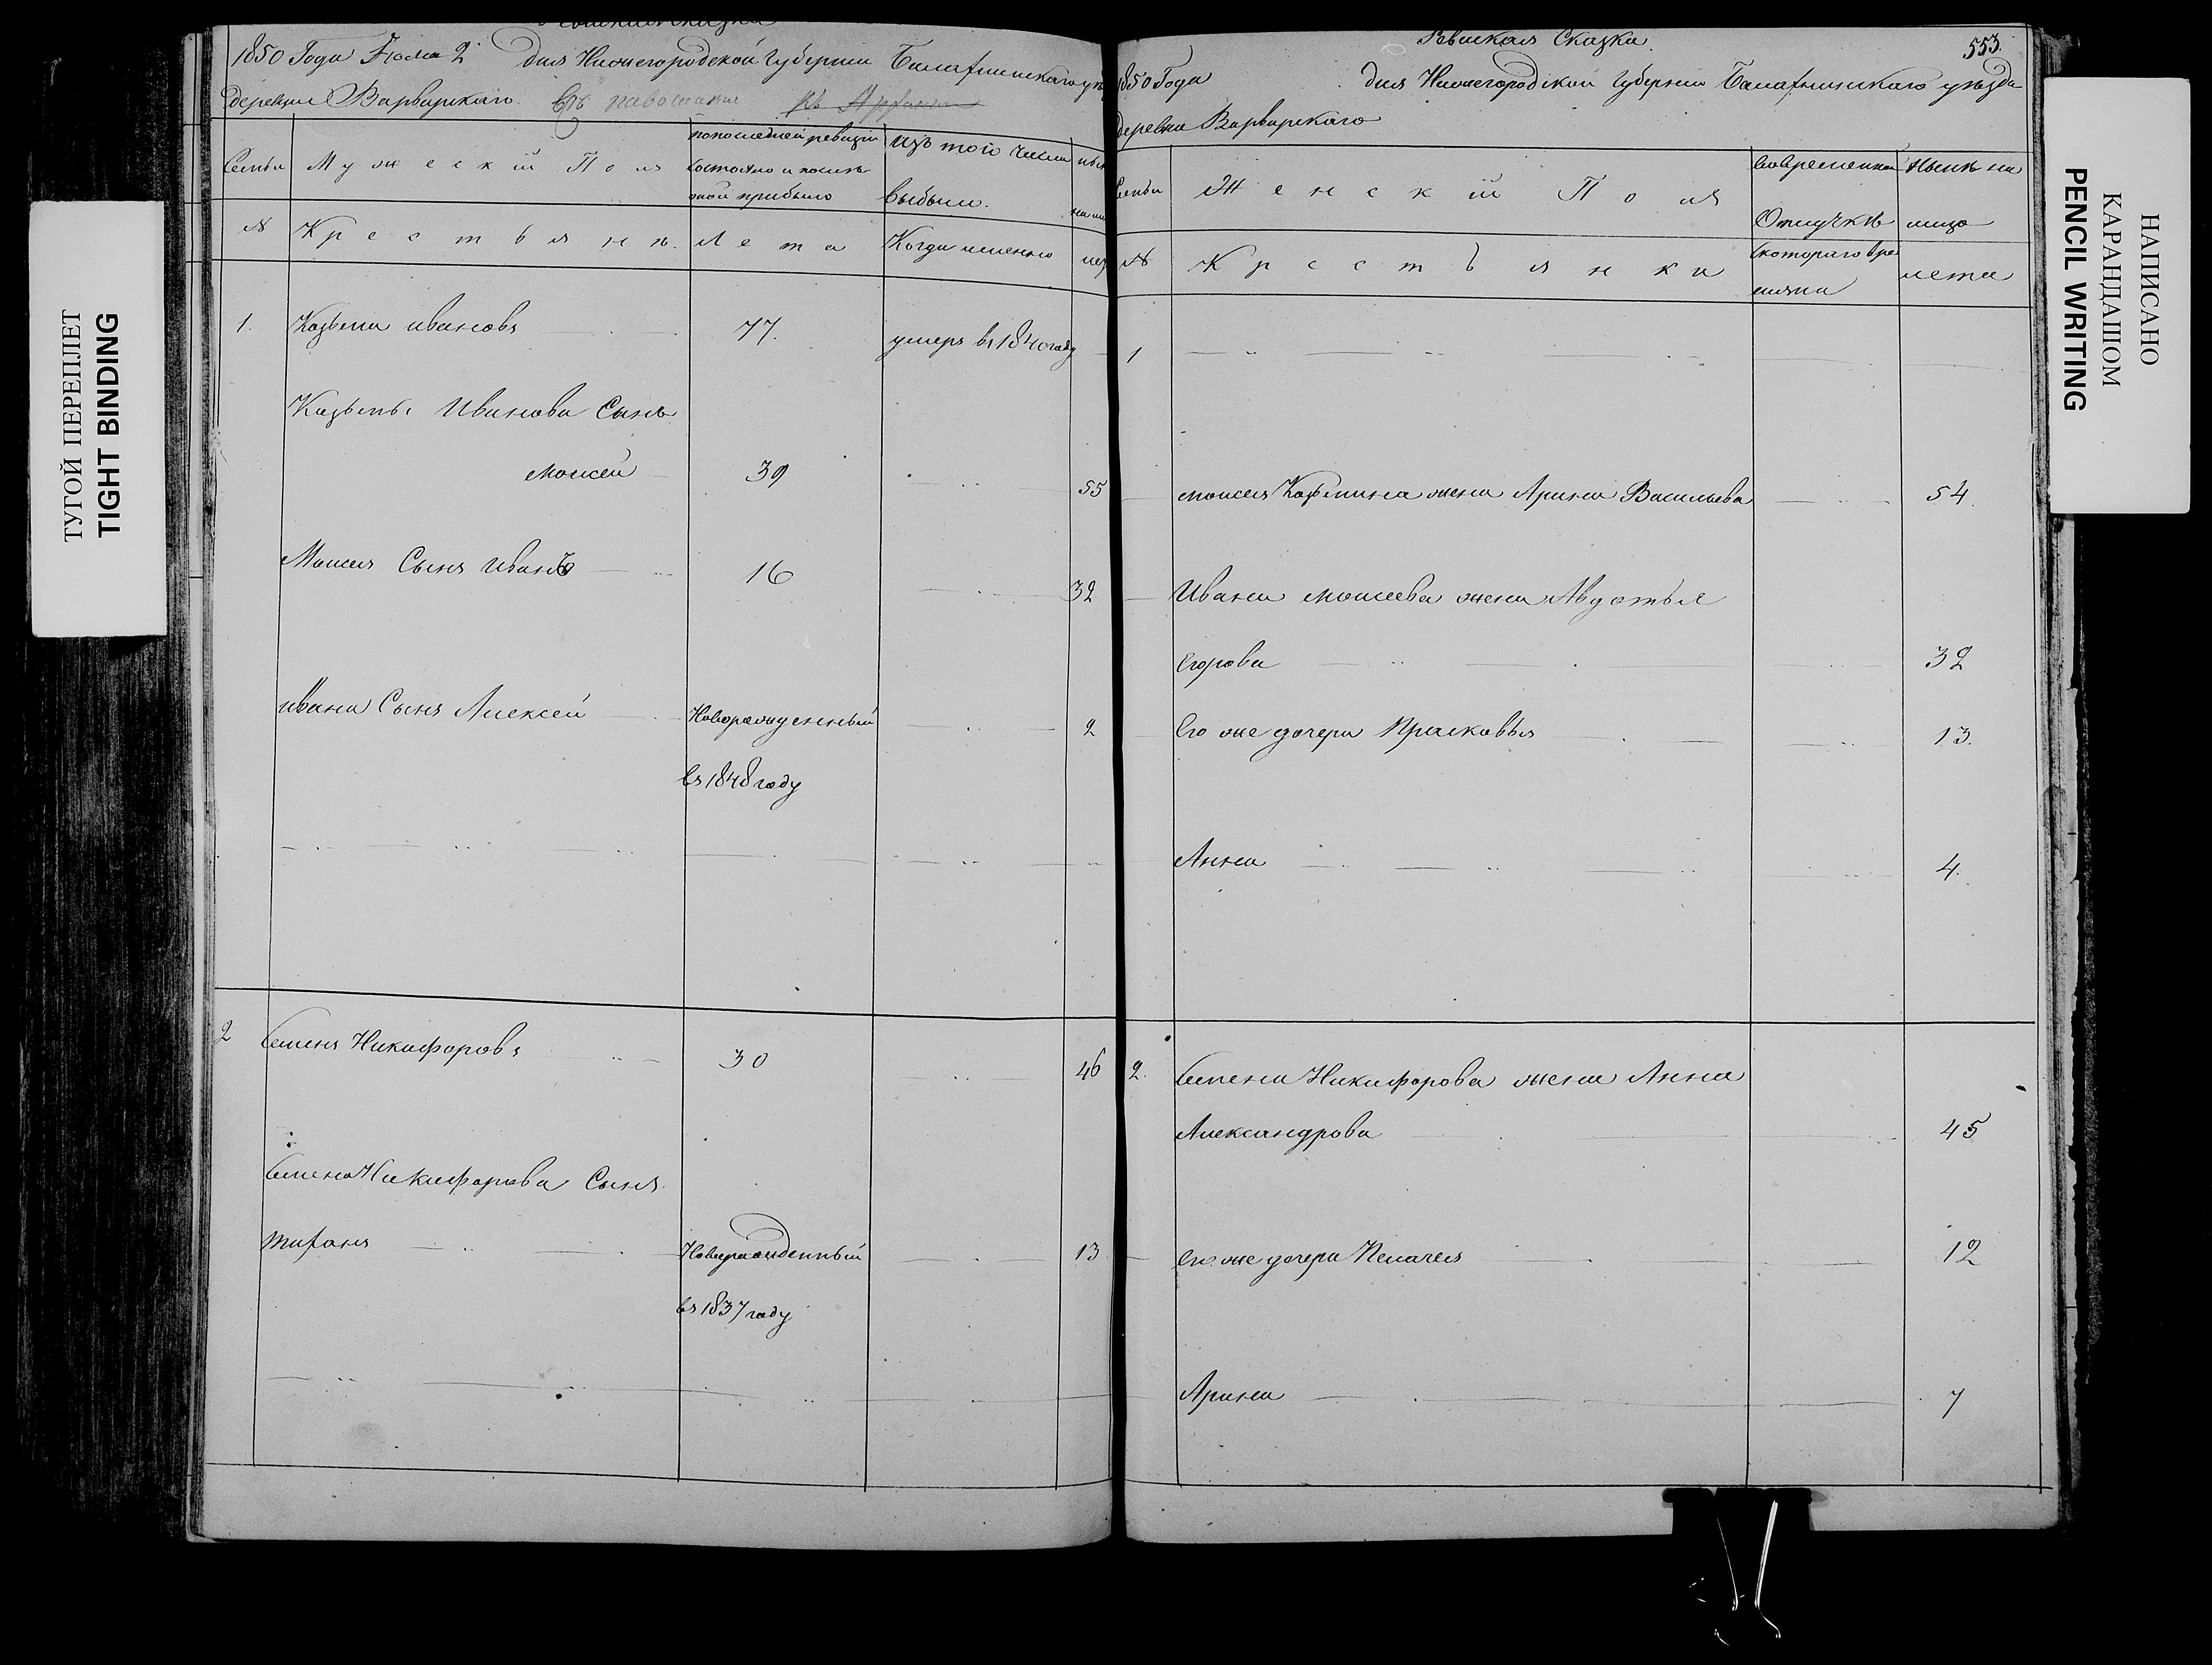 ТУГОЙ ПЕРЕПЛЕТ
TIGHT BINDING
Ревизская сказка
1850 Года Июля 2 дня Нижегородской Губернии Балахнинского уѣ
деревни Варварскаго
Семьи
Мужеский Полъ
по последней ревизии состояло и после оной прибыло
изъ того числа выбыли.
№
Крестьяне.
Лета
Когда именно
1. Козьма ивановъ 77. умеръ въ 1840 году
Козьмы Иванова Сынъ
моисей 39 55
Моисея Сынъ иванъ 16 32
ивана Сынъ Алексей Новорожденный 2
въ 1848 году
2 Семенъ Никифоровъ 30 46
Семена Никифорова Сынъ
Новорожденный 13
въ 1837 году
Ревиская Сказка
553.
1850 Года дня Нижегородской Губернии Балахнинского уезда
деревни Варварского
Семьи
Женский Полъ
Во временной Отлучке
Ныне на лицо
№
Крестьянки
Скотораго времяни
лета
1
моисея Козмина жена Арина Васильева 54
Ивана моисеева жена Авдотья
Егорова 32
Его же дочери Прасковья 13.
Анна 4.
2. Семена Никифорова жена Анна
Александрова 45
Его же дочери Пелагея 12
Арина 7
НАПИСАНО
КАРАНДАШОМ
PENCIL WRITING